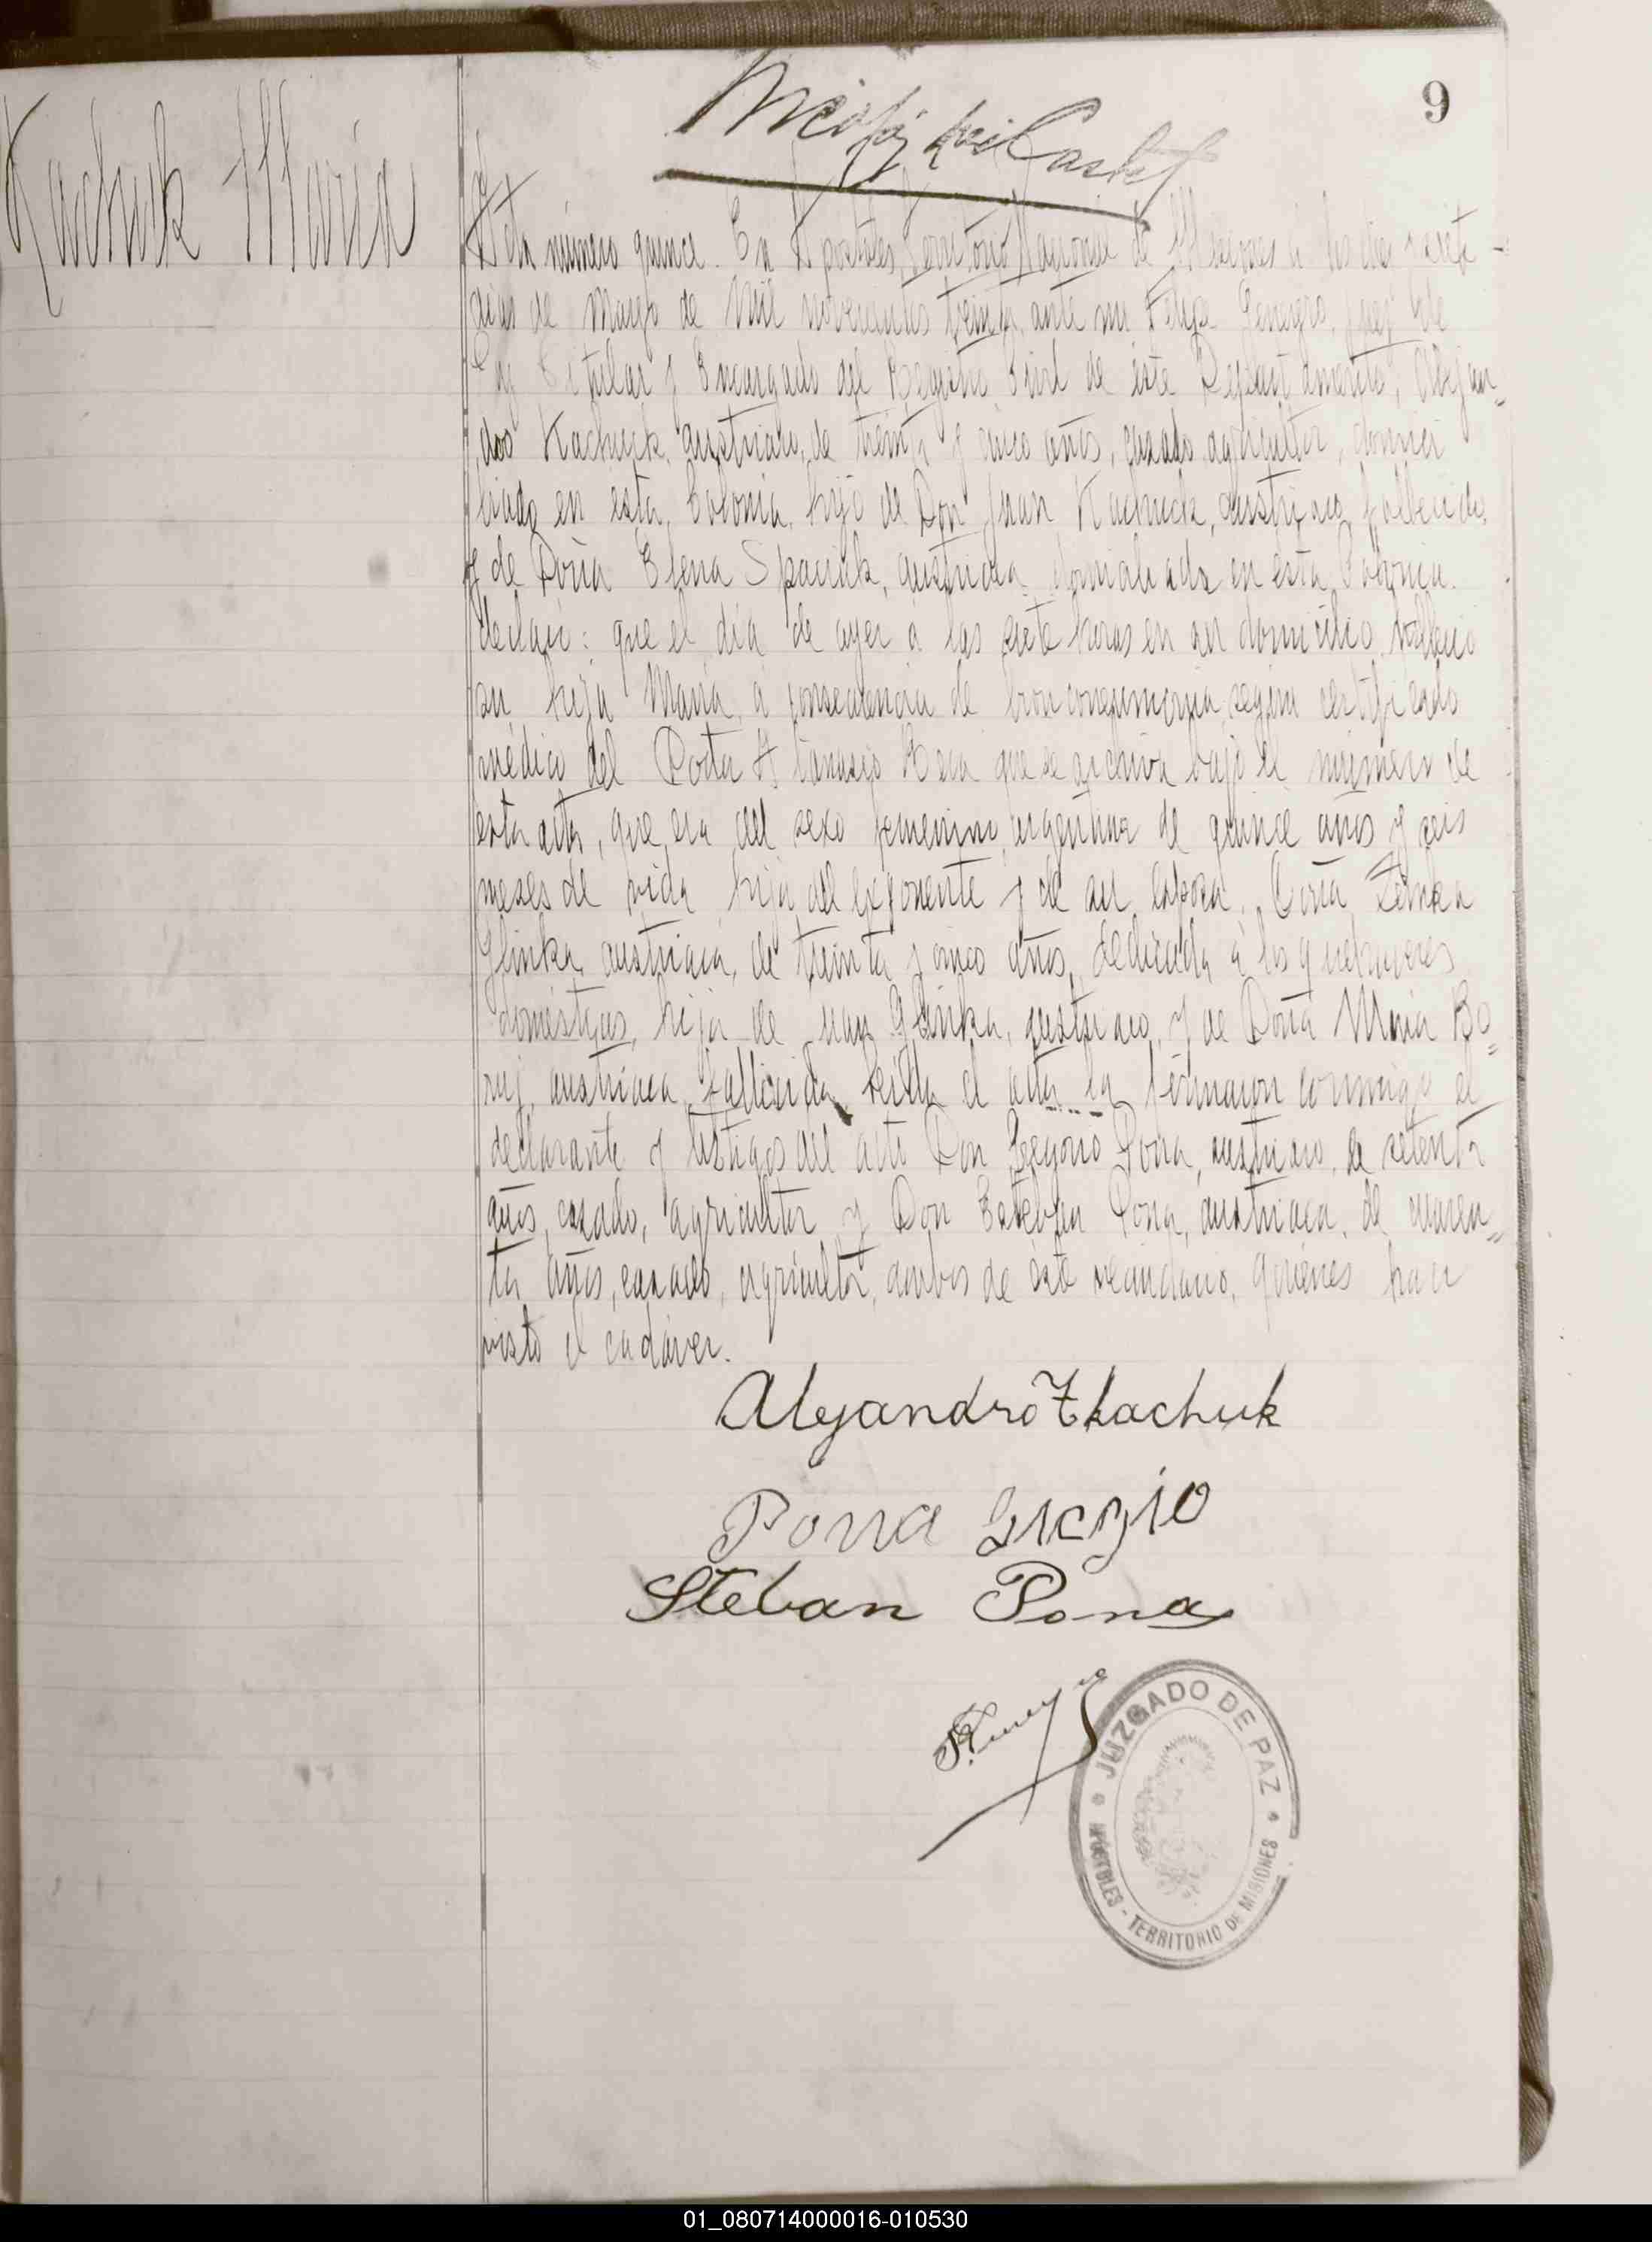 9
Kachuk Maria
Acta número quince. En Apostoles, Territorio Nacional de Misiones á los diez y siete
dias de Marzo de Mil novecientos treinta, ante mi Felipe Juez de
Paz Titular y Encargado del Registro Civil de este Departamento, Alejan-
dro Kachuck, austriaco, de treinta y cinco años, casado, agricultor, domici
liado en esta Colonia, hijo de Don Juan Kachuck, austriaco, fallecido
y de Doña Elena Spaciuk, austriaca domiciliada en esta Colonia.
declaró: que el día de ayer a las siete horas en su domicilio falleció
su hija Maria, a consecuencia de bronconeumonia, según certificado
médico del Doctor Atanasio que se archiva bajo el número de
esta acta, que era del sexo femenino, argentina de quince años y seis
meses de vida hija del exponente y de su esposa, Doña
Glinka, austriaca, de treinta y cinco años, dedicada á los quehaceres
domésticos, hija de Juan Glinka, austriaco, y de Doña Maria Bo-
ruj, austriaca, fallecida. Leida el acta la firmaron conmigo el
declarante y testigos del acto Don Gregorio Pona, austriaco, de setenta
años, casado, agricultor y Don Esteban Pona, austriaca, de cuaren-
ta años, casado, agricultor, ambos de este vecindario, quienes han
visto el cadáver.
Alejandro Tkachuk
Pona
Steban Pona
JUZGADO DE PAZ
APÓSTOLES - TERRITORIO DE MISIONES
01_080714000016-010530